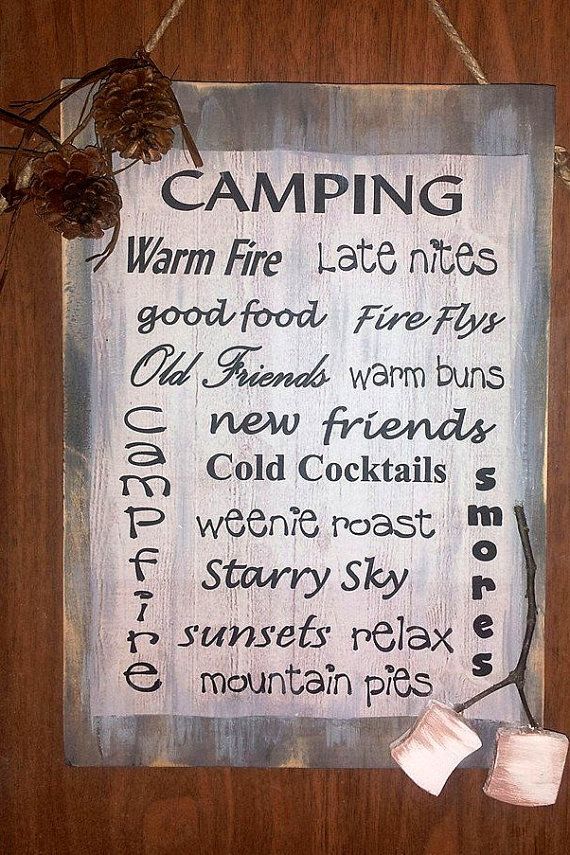 CAMPING
Warm Fire Late nites
good food Fire Flys
Old Friends warm buns
new friends
Cold Cocktails
campfire
smores
weenie roast
Starry Sky
sunsets relax
mountain pies